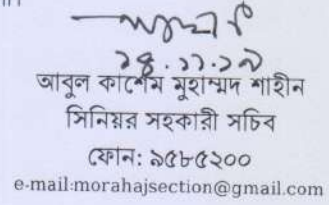 ১৪.১১.১৯
আবুল কাশেম মুহাম্মদ শাহীন
সিনিয়র সহকারী সচিব
ফোন: ৯৫৮৫২০০
e-mail:morahajsection@gmail.com